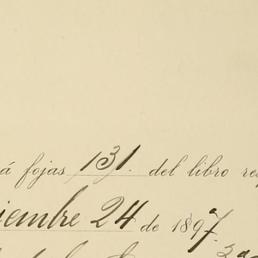 á fojas 131. del libro re
iembre 24 de 1897.